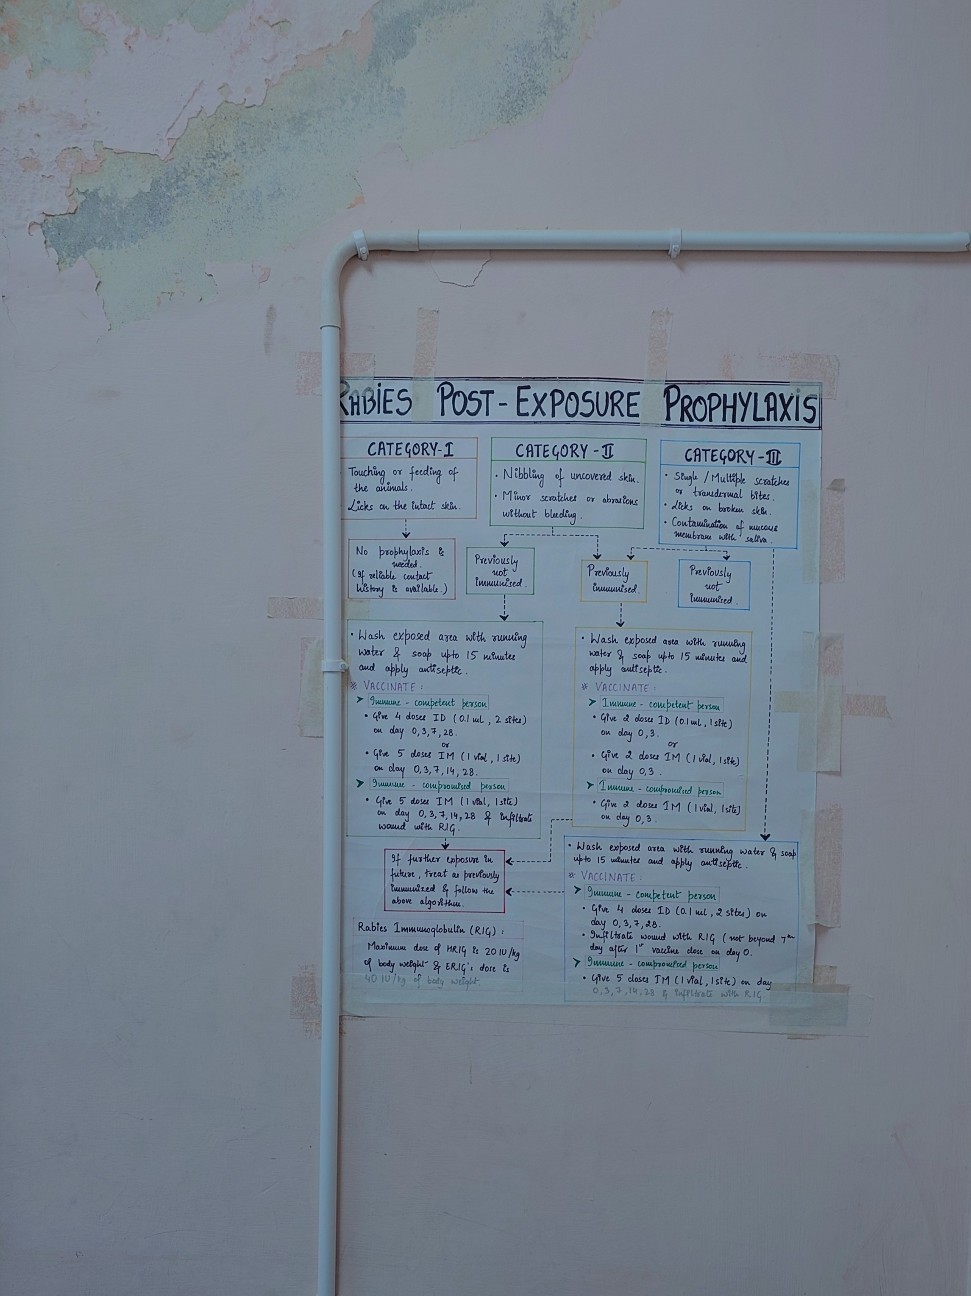 RABIES POST-EXPOSURE PROPHYLAXIS
CATEGORY-I
Touching or feeding of
the animals.
Licks on the intact skin.
No prophylaxis is
needed.
(If reliable contact
history is available.)
CATEGORY-II
• Nibbling of uncovered skin.
• Minor scratches or abrasions
without bleeding.
CATEGORY-III
• Single/Multiple scratches
or transdermal bites.
• Licks on broken skin.
• Contamination of mucous
membrane with saliva.
Previously
not
immunised.
Previously
immunised.
Previously
not
immunised.
• Wash exposed area with running
water & soap upto 15 minutes
and apply antiseptic.
* VACCINATE:
➤ Immune-competent person
• Give 4 doses ID (0.1 mL, 2 sites)
on day 0,3,7,28.
or
• Give 5 doses IM (1 vial, 1 site)
on day 0,3,7,14,28.
➤ Immune-compromised person
• Give 5 doses IM (1 vial, 1 site)
on day 0,3,7,14,28 & infiltrate
wound with RIG.
• Wash exposed area with running
water & soap upto 15 minutes and
apply antiseptic.
* VACCINATE:
➤ Immune-competent person
• Give 2 doses ID (0.1 mL, 1 site)
on day 0,3.
or
• Give 2 doses IM (1 vial, 1 site)
on day 0,3.
➤ Immune-compromised person
• Give 2 doses IM (1 vial, 1 site)
on day 0,3.
If further exposure in
future, treat as previously
immunized & follow the
above algorithm.
Rabies Immunoglobulin (RIG):
Maximum dose of HRIG is 20 IU/kg
of body weight & ERIG's dose is
40 IU/kg of body weight
• Wash exposed area with running water & soap
upto 15 minutes and apply antiseptic.
* VACCINATE:
➤ Immune-competent person
• Give 4 doses ID (0.1 mL, 2 sites) on
day 0,3,7,28.
• Infiltrate wound with RIG (not beyond 7th
day after 1st vaccine dose on day 0.
➤ Immune-compromised person
• Give 5 doses IM (1 vial, 1 site) on day
0,3,7,14,28 & infiltrate with RIG